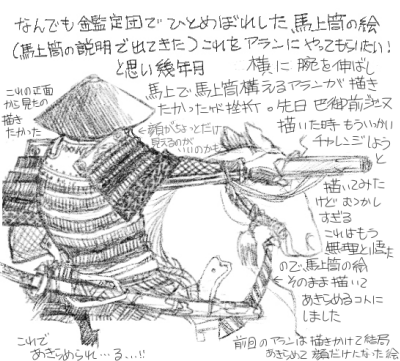 なんでも鑑定団でひとめぼれした馬上筒の絵
(馬上筒の説明で出てきた)これをアランにやってもらいたい!
と思い幾年月
横に腕を伸ばし
馬上で馬上筒構えるアランが描き
たかったが挫折。先日巴御前ジェンヌ
描いた時もういっかい
チャレンジしよう
と
描いてみた
けどむつかし
すぎる
これはもう
無理と悟った
ので、馬上筒の絵
そのまま描いて
あきらめるコトに
しました
これの正面
から見たの
描き
たかった
←顔がちょっとだけ
見えるのが
いいのかも
これで
あきらめられ…る…!!
前回のアランは描きかけて結局
あきらめて顔だけになった絵